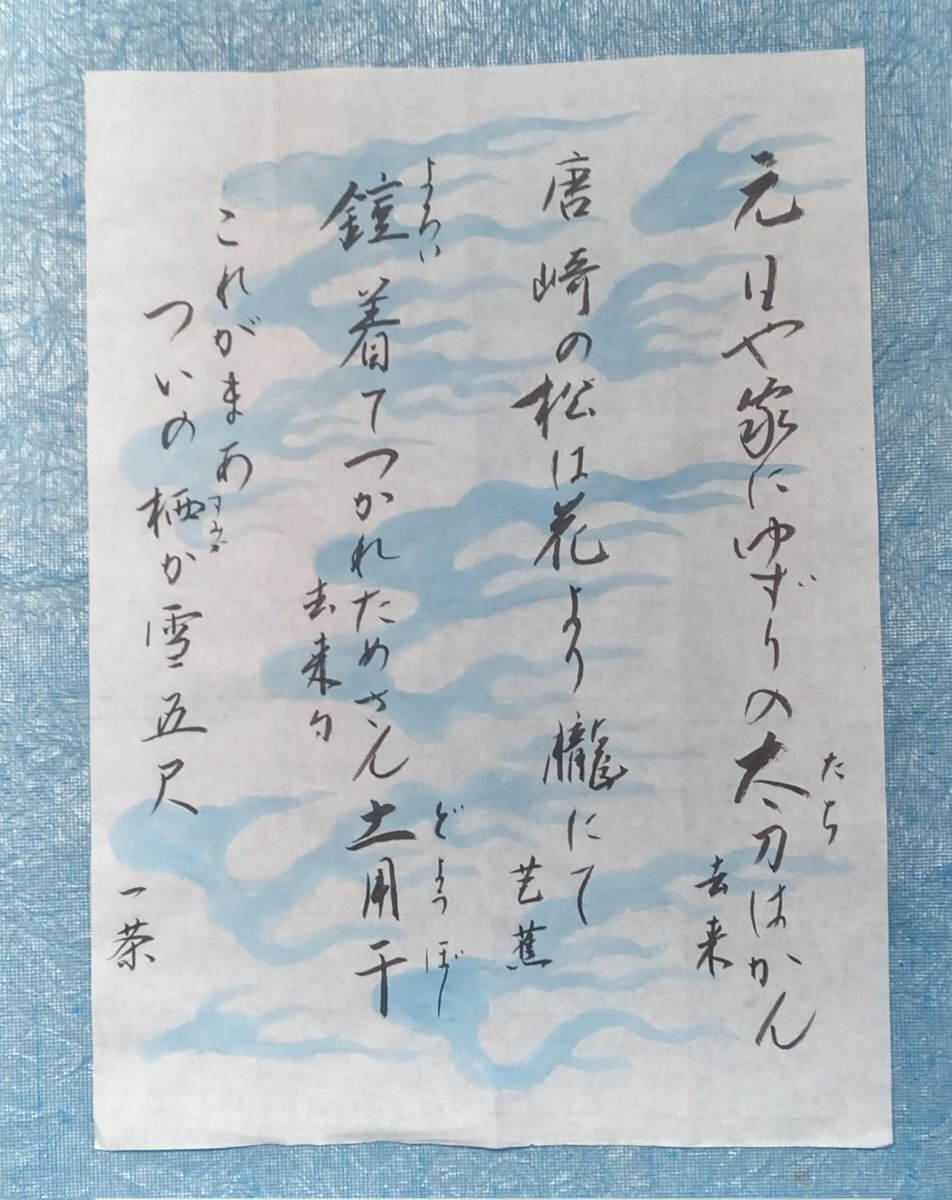 元日や家にゆずりの太刀はかん
たち
去来
唐崎の松は花より朧にて
芭蕉
鎧着てつかれためさん土用干
よろい
どようぼし
去来句
これがまあ
ついの栖か雪五尺
すみか
一茶